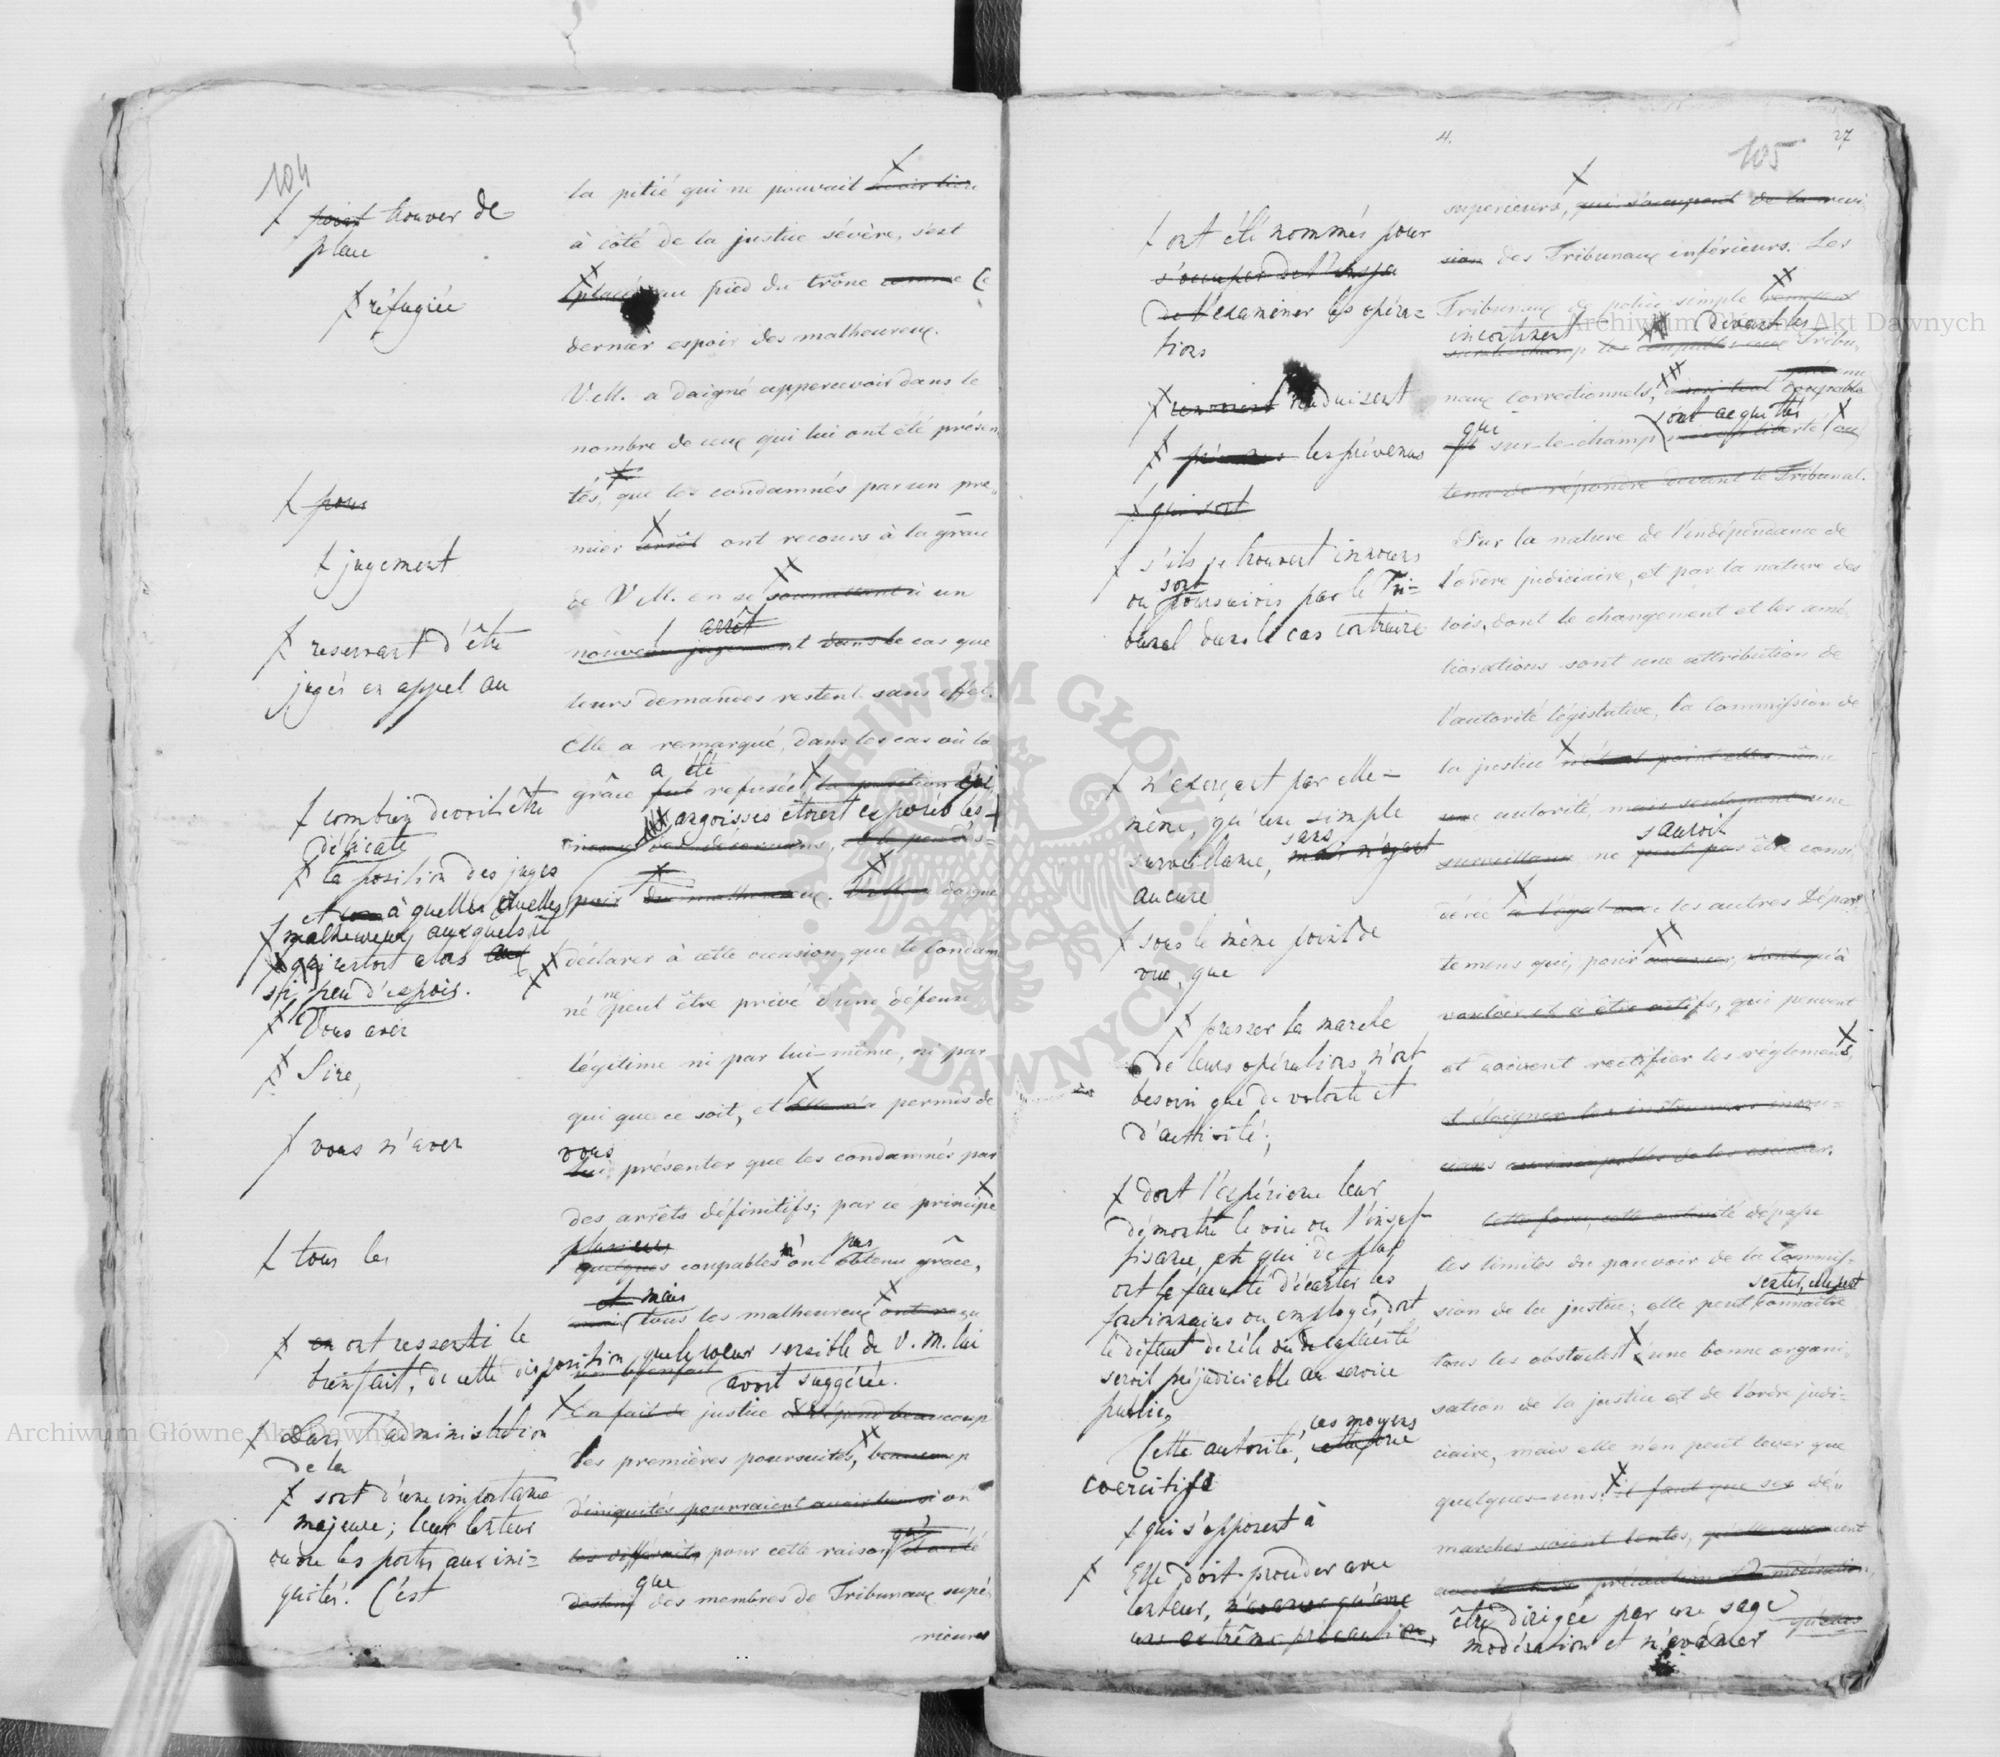 104
la pitié qui ne pouvait avoir lieu
point trouver de
place
à côté de la justice sévère, s'est
placée au pied du trône comme le
réfugiée
dernier espoir des malheureux.
V.M. a daigné appercevoir dans le
nombre de ceux qui lui ont été présen
tés, que les condamnés par un pre„
pour
mier arrêt ont recours à la grâce
jugement
de V.M. en se soumettant à un
arrêt
nouveau jugement dans le cas que
reservant d'être
jugés en appel au
leurs demandes restent sans effet.
Elle a remarqué, dans les cas où la
a été
grâce fut refusée, la position
combien devoit être
délicate
la position des juges
angoisses étoient exposés les
et à quelles cruelles
malheureux auxquels il
restoit alors
si peu d'espoir.
Vous avez
Sire,
déclarer à cette occasion, que le condam
né ne peut être privé d'une défense
légitime ni par lui-même, ni par
qui que ce soit, et elle n'a permis de
vous
lui présenter que les condamnés par
vous n'avez
des arrêts définitifs; par ce principe
plusieurs
quelques coupables n'ont pas obtenu grâce,
tous les
et mais
tous les malheureux ont reçu
en ont ressenti le
bienfait, de cette disposition, que le cœur sensible de V. M. lui
avoit suggérée.
En fait de justice dépend beaucoup
Dans l'administration
de la
les premières poursuites, beaucoup
sont d'une importance
majeure; leur lenteur
ouvre les portes aux ini=
quités. C'est
d'iniquités pourraient avoir lieu si on
les différait, pour cette raison
que
des membres de Tribunaux supé„
rieurs
4.
105
27
superieurs, qui s'occupent de la revi„
sion des Tribunaux inférieurs. Les
ont été nommés pour
s'occuper de
de l'examiner les opéra=
tions
Tribunaux de police simple
incontinent devant les
sur le champ les coupables aux Tribu„
renvoient conduisent
naux correctionnels,
les prévenus
sont acquittés
qui sur-le-champ mis en liberté, ou
qui sont
tenu de répondre devant le Tribunal.
s'ils se trouvent innocens
ou sont poursuivis par le Tri=
bunal dans le cas contraire
Sur la nature de l'indépendance de
l'ordre judiciaire, et par la nature des
lois, dont le changement et les amé„
liorations sont une attribution de
l'autorité législative, la Commission de
la justice n'étant point elle même
n'exerçant par elle-
même, qu'une simple
surveillance, sans
mais n'ayant
aucune
une autorité, mais seulement une
surveillance ne sauroit
peut pas être consi
dérée à l'égal avec les autres Dépar„
sous le même point de
vue, que
temens qui, pour avancer, n'ont qu'à
vouloir et à être actifs, qui peuvent
presser la marche
de leurs opérations, n'ont
besoin que de volonté et
d'activité;
et doivent rectifier les réglemens,
et éloigner les instrumens
dont l'expérience leur
démontre le vice ou l'insuf-
fisance, et qui de plus
ont la faculté d'écarter les
fonctionnaires ou employés, dont
le défaut de zèle ou de capacité
seroit préjudiciable au service
public,
Cette force, cette autorité dépasse
les limites du pouvoir de la Commis„
sion de la justice; elle peut connaître
tous les obstacles à une bonne organi„
sation de la justice et de l'ordre judi„
Cette autorité, ces moyens
coercitifs
ciaire, mais elle n'en peut lever que
quelques-uns. il faut que ses dé„
qui s'opposent à
marches soient lentes,
Elle doit procéder avec
lenteur, n'avancer qu'avec
une extrême précaution,
être dirigée par une sage
modération et n'avancer
qu'elles
Archiwum Główne Akt Dawnych
Archiwum Główne Akt Dawnych
ARCHIWUM GŁÓWNE AKT DAWNYCH